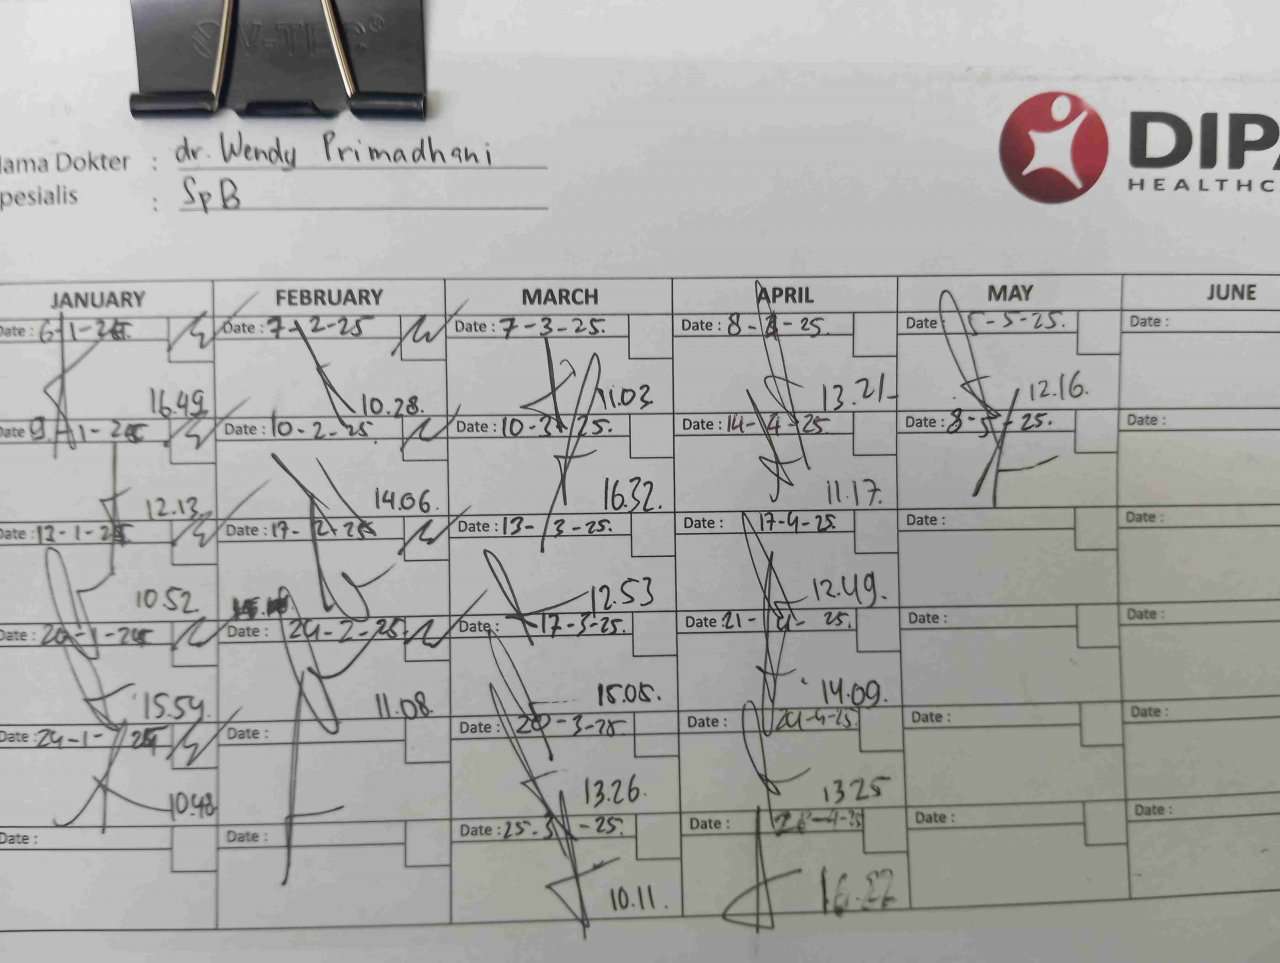 V-TEC®
Nama Dokter : dr. Wendy Primadhani
pesialis : SpB
DIPA
HEALTHC
JANUARY FEBRUARY MARCH APRIL MAY JUNE
Date : 6-1-25. Date : 7-2-25 Date : 7-3-25. Date : 8-4-25. Date 5-5-25. Date :
16.49 10.28. 11.03 13.21 12.16.
Date 9-1-25 Date : 10-2-25. Date : 10-3-25. Date : 14-4-25. Date : 8-5-25. Date :
12.13 14.06. 16.32. 11.17.
Date : 13-1-25 Date : 17-2-25 Date : 13-3-25. Date : 17-4-25. Date : Date :
10.52 12.53 12.49.
Date : 20-1-25 Date : 24-2-25 Date : 17-3-25. Date : 21-4-25. Date : Date :
15.59. 11.08. 15.05. 14.09.
Date : 24-1-25 Date : Date : 20-3-25. Date : 24-4-25. Date : Date :
10.48 13.26. 13.25
Date : Date : Date : 25-3-25. Date : Date : Date :
10.11.